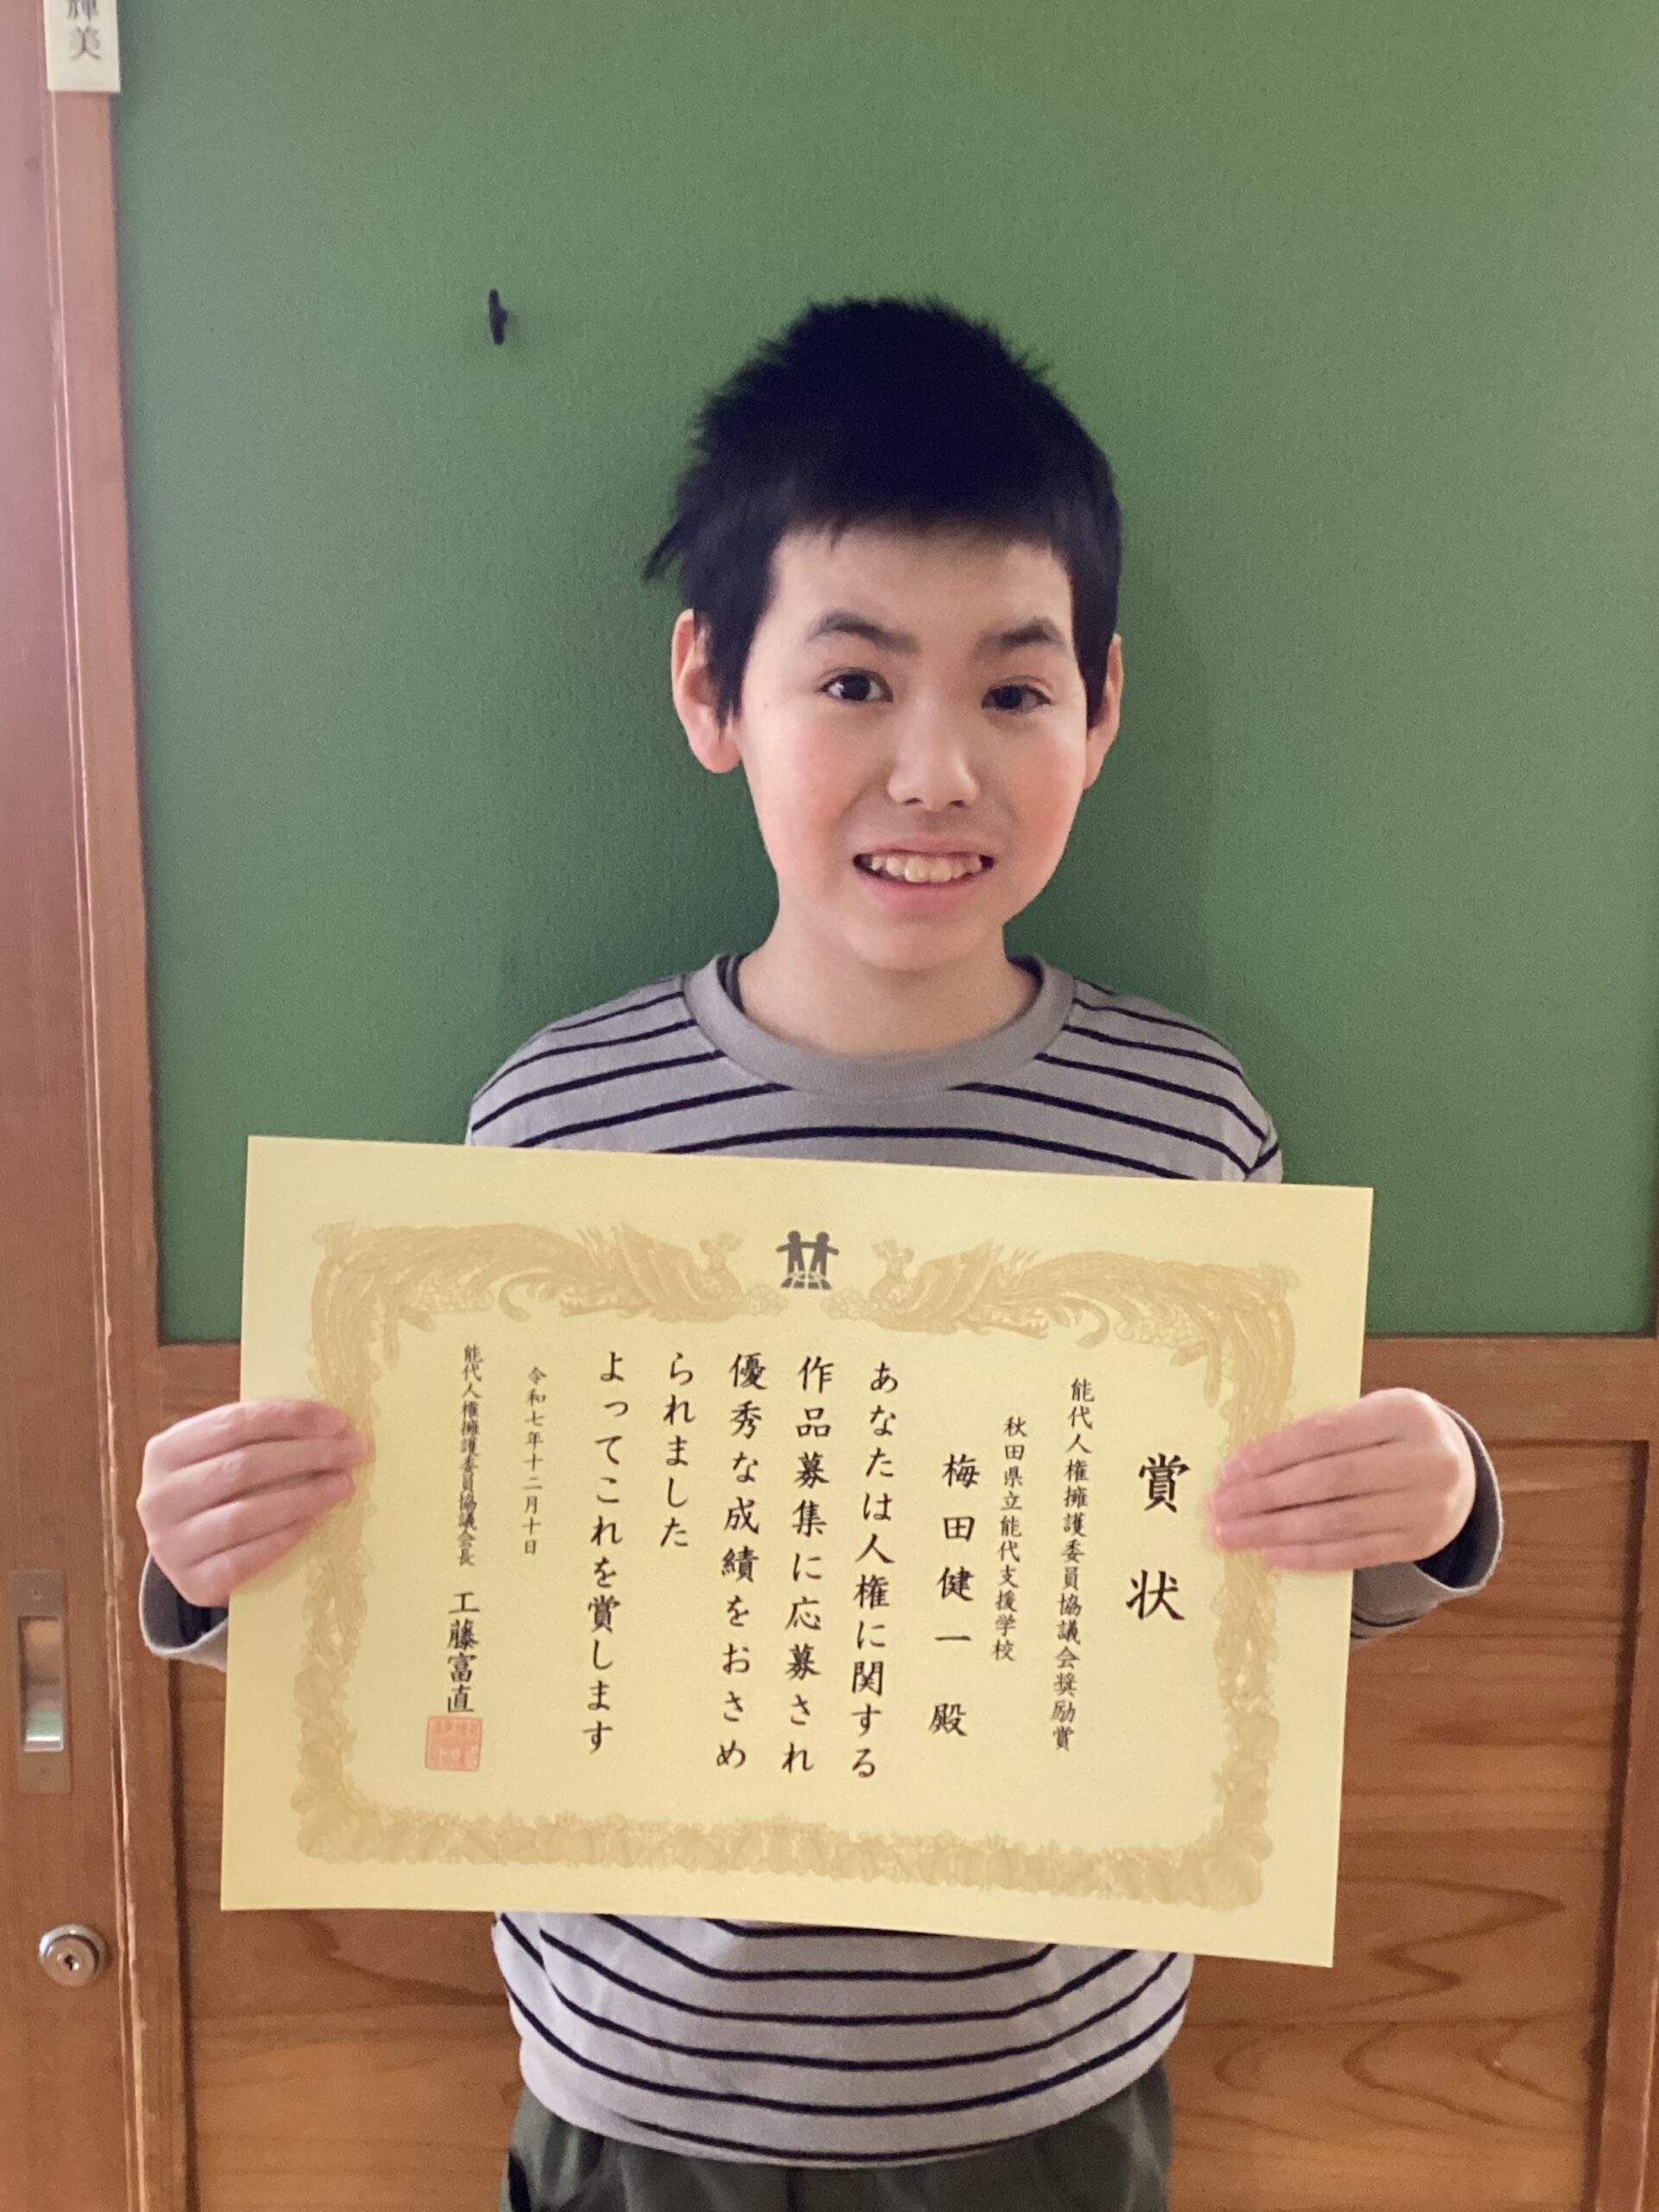 賞状
能代人権擁護委員協議会奨励賞
秋田県立能代支援学校
梅田健一 殿
あなたは人権に関する
作品募集に応募され
優秀な成績をおさめ
られました
よってこれを賞します
令和七年十二月十日
能代人権擁護委員協議会長 工藤富直
輝美